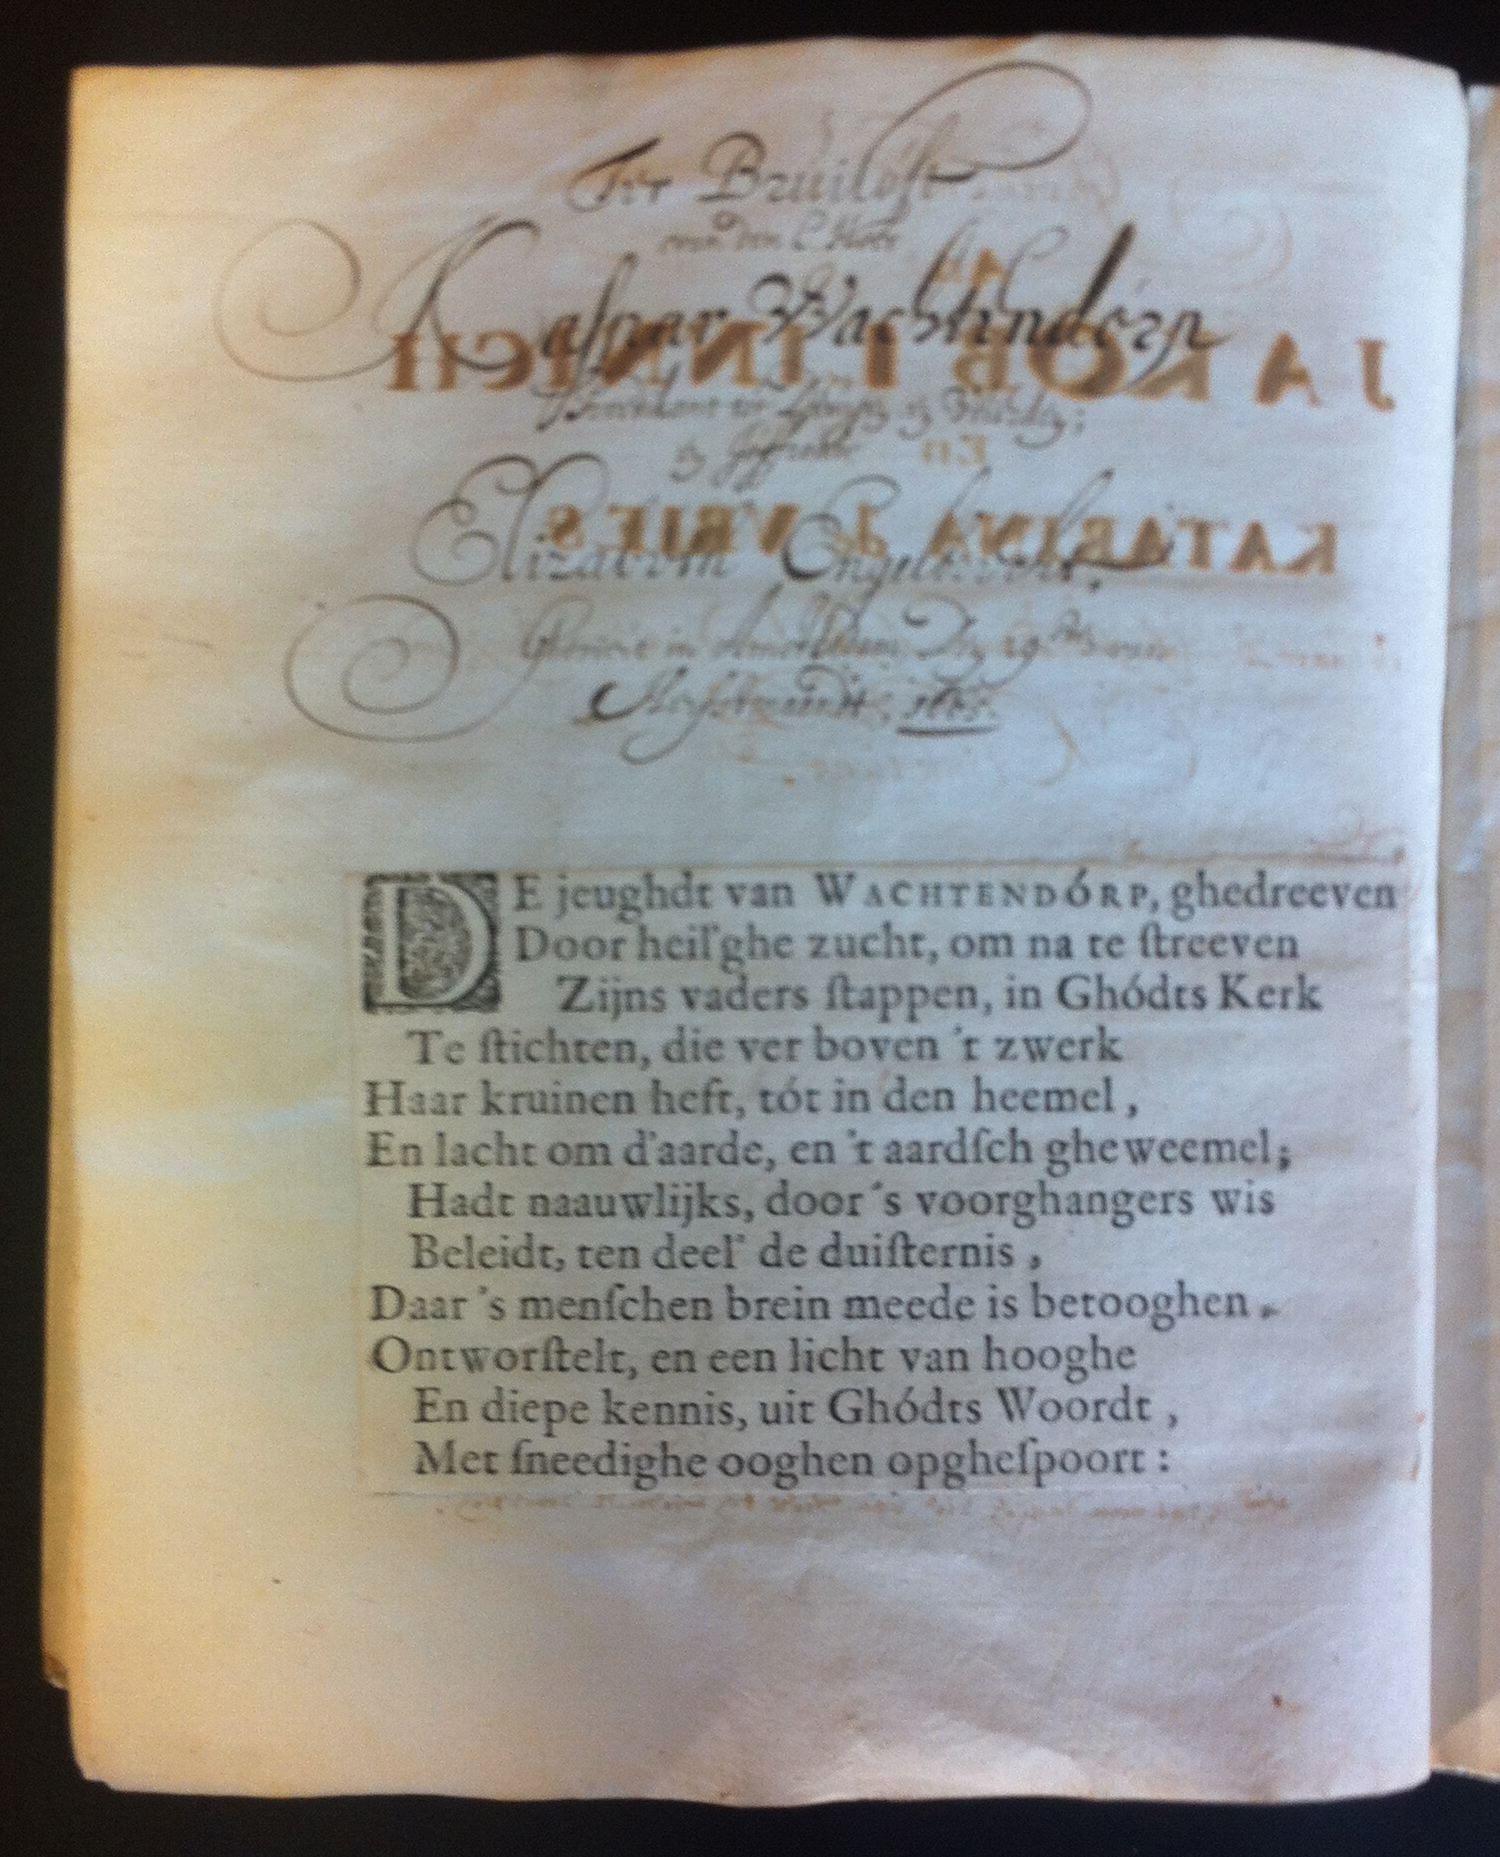 Ter Bruiloft
van den E. Heere
Kaspar Wachtendórp
Predikant
en Juffrouw
Elizabeth
in Amsterdam Den 29
1661.
DE jeughdt van WACHTENDÓRP, ghedreeven
Door heil'ghe zucht, om na te ſtreeven
Zijns vaders ſtappen, in Ghódts Kerk
Te ſtichten, die ver boven 't zwerk
Haar kruinen heft, tót in den heemel,
En lacht om d'aarde, en 't aardſch gheweemel;
Hadt naauwlijks, door 's voorghangers wis
Beleidt, ten deel' de duiſternis,
Daar 's menſchen brein meede is betooghen,
Ontworſtelt, en een licht van hooghe
En diepe kennis, uit Ghódts Woordt,
Met ſneedighe ooghen opgheſpoort:
JAKOB LINNICH
En
KATARINA d. VRIES